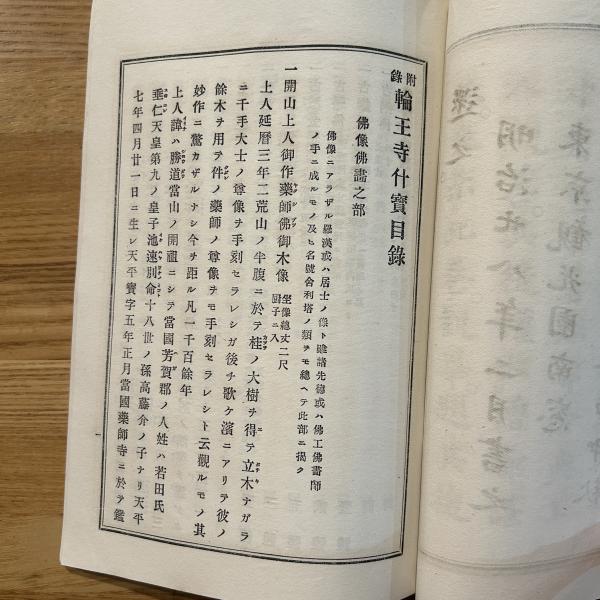 附錄
輪王寺什寶目錄
佛像佛畫之部
佛像ニアラザル羅漢或ハ居士ノ像ト雖諸先德或ハ佛工佛畫師
ノ手ニ成ルモノ及ヒ名號舍利塔ノ類ヲモ總ヘテ此部ニ揭ク
一開山上人御作藥師佛御木像
坐像總丈二尺
厨子ニ入
上人延曆三年二荒山ノ半腹ニ於テ桂ノ大樹ヲ得テ立木ナガラ
ニ千手大士ノ尊像ヲ手刻セラレシガ後チ歌ケ濱ニアリテ彼ノ
餘木ヲ用テ件ノ藥師ノ尊像ヲモ手刻セラレシト云觀ルモノ其
妙作ニ驚カザルナシ今ヲ距ル凡一千百餘年
上人諱ハ勝道當山ノ開祖ニシテ當國芳賀郡ノ人姓ハ若田氏
垂仁天皇第九ノ皇子池速別命十八世ノ孫高藤介ノ子ナリ天平
七年四月廿一日ニ生レ天平寶字五年正月當國藥師寺ニ於テ鑑
一